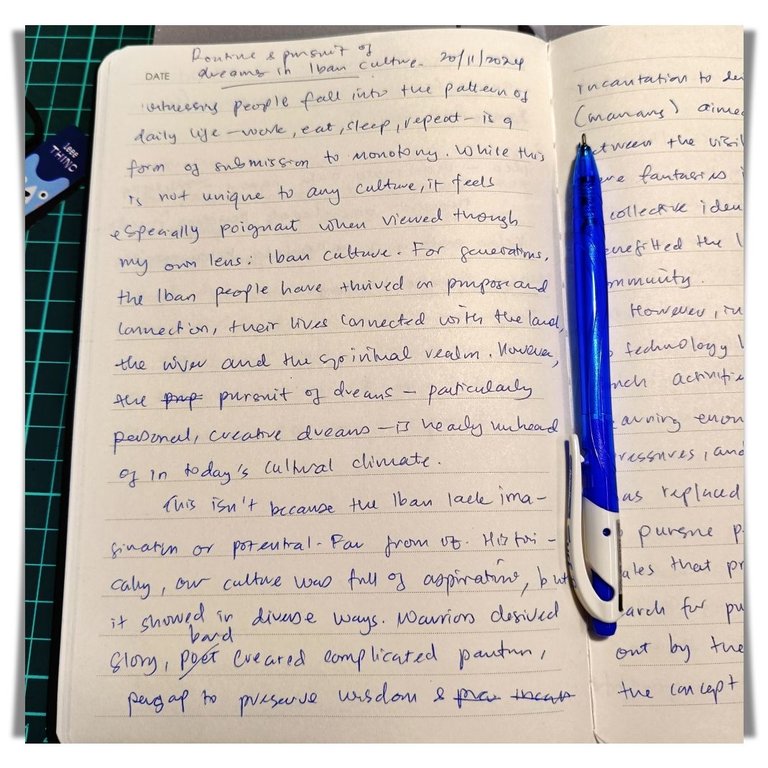 Routine & pursuit of
DATE dreams in Iban culture. 20/11/2024
witnessing people fall into the pattern of
daily life – work, eat, sleep, repeat – is a
form of submission to monotony. While this
is not unique to any culture, it feels
especially poignant when viewed through
my own lens: Iban culture. For generations,
the Iban people have thrived on purpose and
connection, their lives connected with the land,
the river and the spiritual realm. However,
the pursuit of dreams – particularly
personal, creative dreams – is nearly unheard
of in today's cultural climate.
This isn't because the Iban lack ima-
gination or potential. Far from it. Histori-
cally, our culture was full of aspirations, but
it showed in diverse ways. Warriors desired
bard
glory, poet created complicated pantun,
pengap to preserve wisdom &
incantation to
(manang) aimed
between the
fantasies
collective
benefitted the
However, in
technology
activities
earning
pressures, and
has replaced
pursue
that
search for
out by the
the concept
ieee
THINO